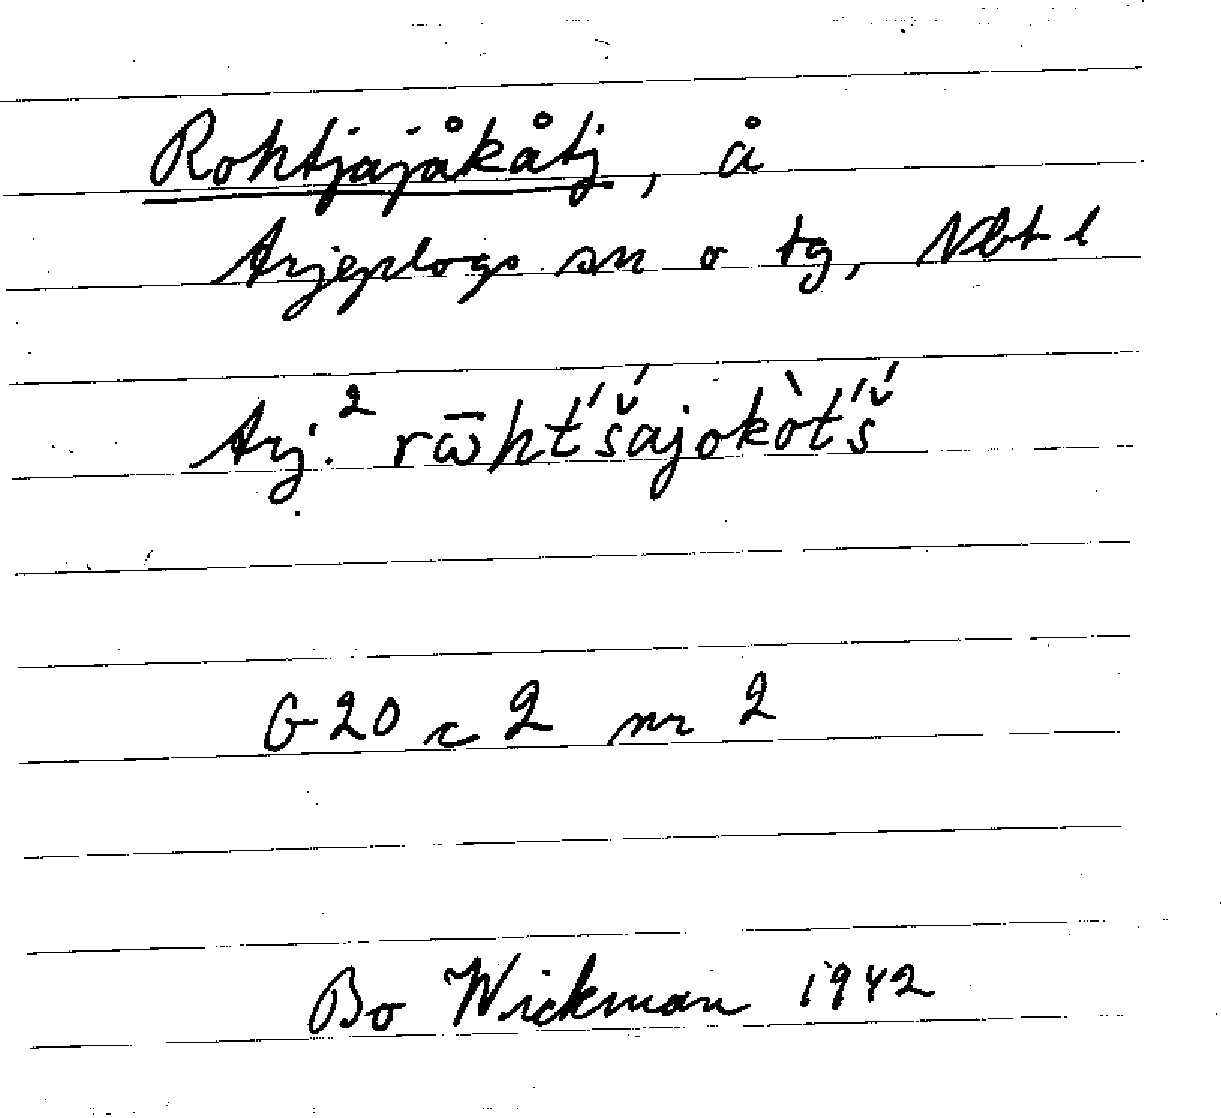 Rohtjajåkåtj, å
Arjeplogs sn o tg, Nbt l
Arj.² rω̄ht́š́ajokòt́š́
G20 c 2 nr 2
Bo Wickman 1942